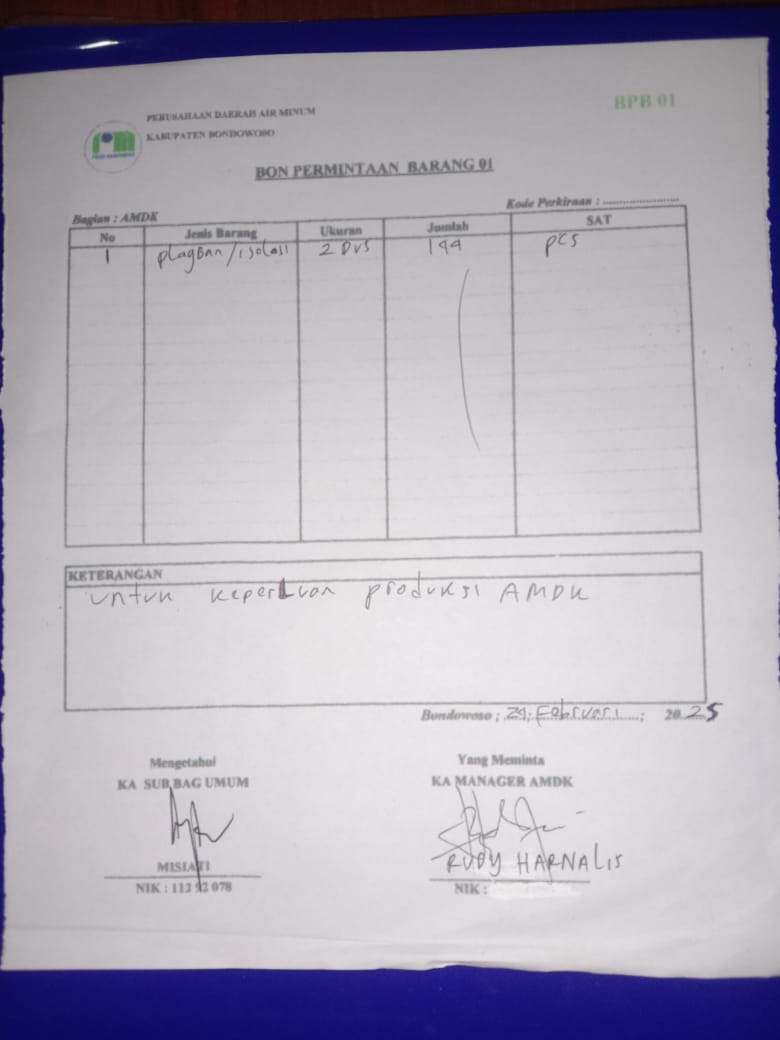 BPB 01
PERUSAHAAN DAERAH AIR MINUM
KABUPATEN BONDOWOSO
BON PERMINTAAN BARANG 01
Kode Perkiraan : ........................
Bagian : AMDK
No Jenis Barang Ukuran Jumlah SAT
1 plagban/isolasi 2 DUS 144 pcs
KETERANGAN
untuk keperluan produksi AMDK
Bondowoso ; 24 Februari ; 2025
Mengetahui
KA SUB BAG UMUM
MISIATI
NIK : 112 92 078
Yang Meminta
KA MANAGER AMDK
RUDY HARNALIS
NIK :